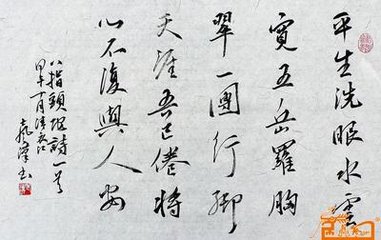 平生洗眼水雲
寬五岳羅胸
翠一團行脚
天涯吾已倦將
心不復與人安
八指頭陀詩一首
甲午十月
書